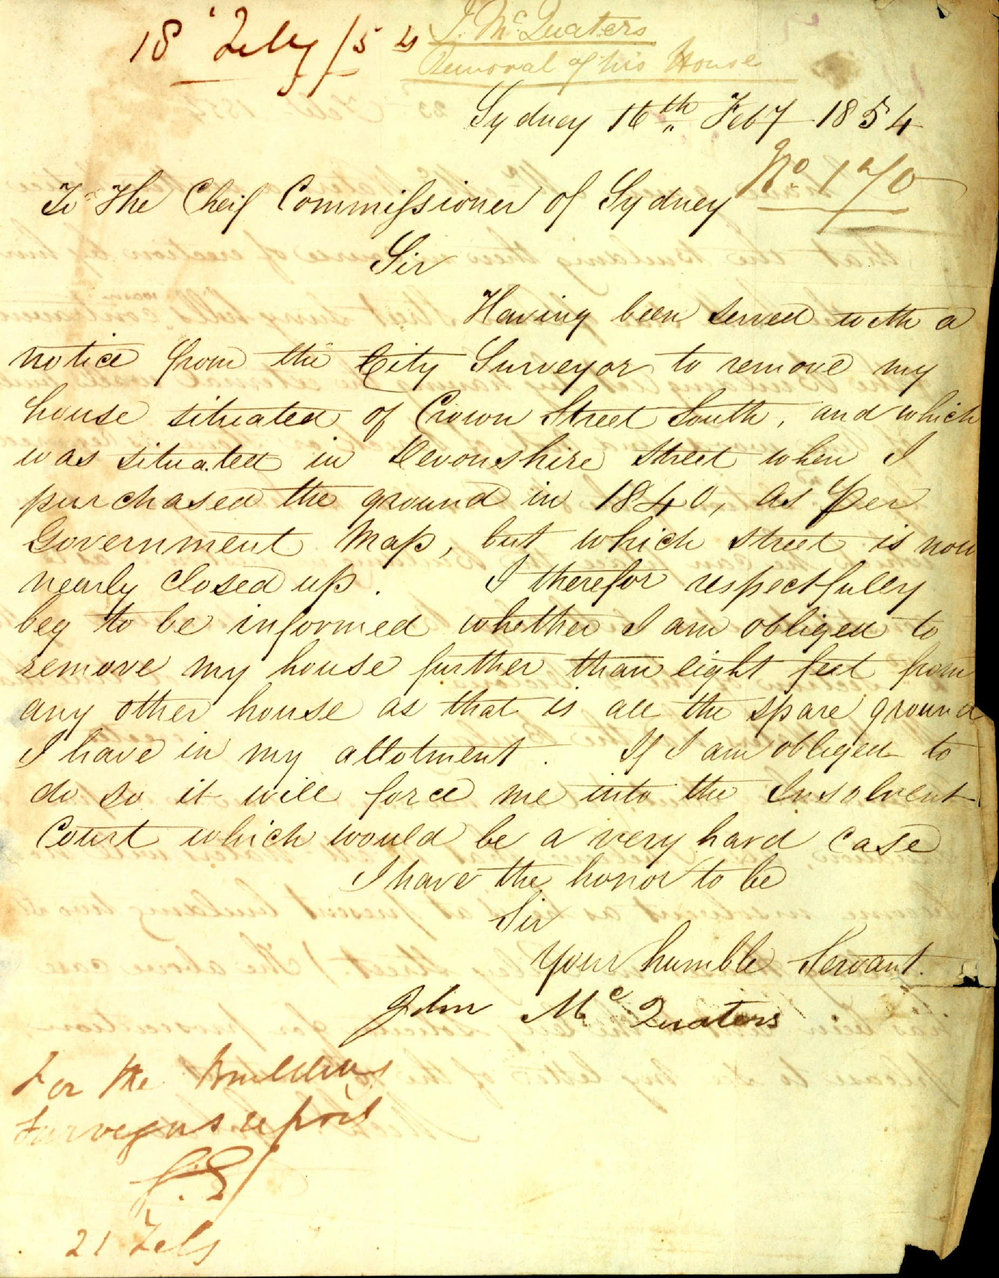 18 Feby /54
J. McQuaters
Removal of his House
Sydney 16th Feby 1854
No 170
To The Cheif Commissioner of Sydney
Sir
Having been served with a
notice from the City Surveyor to remove my
house situated of Crown Street South, and which
was situated in Devonshire Street when I
purchased the ground in 1840, as per
Government Map, but which street is now
nearly closed up. I therefor respectfully
beg to be informed whether I am obliged to
remove my house further than eight feet from
any other house as that is all the spare ground
I have in my allotment. If I am obliged to
do so it will force me into the Insolvent
Court which would be a very hard case
I have the honor to be
Sir
Your humble Servant.
John McQuaters
For the Building
Surveyors report
21 Feby